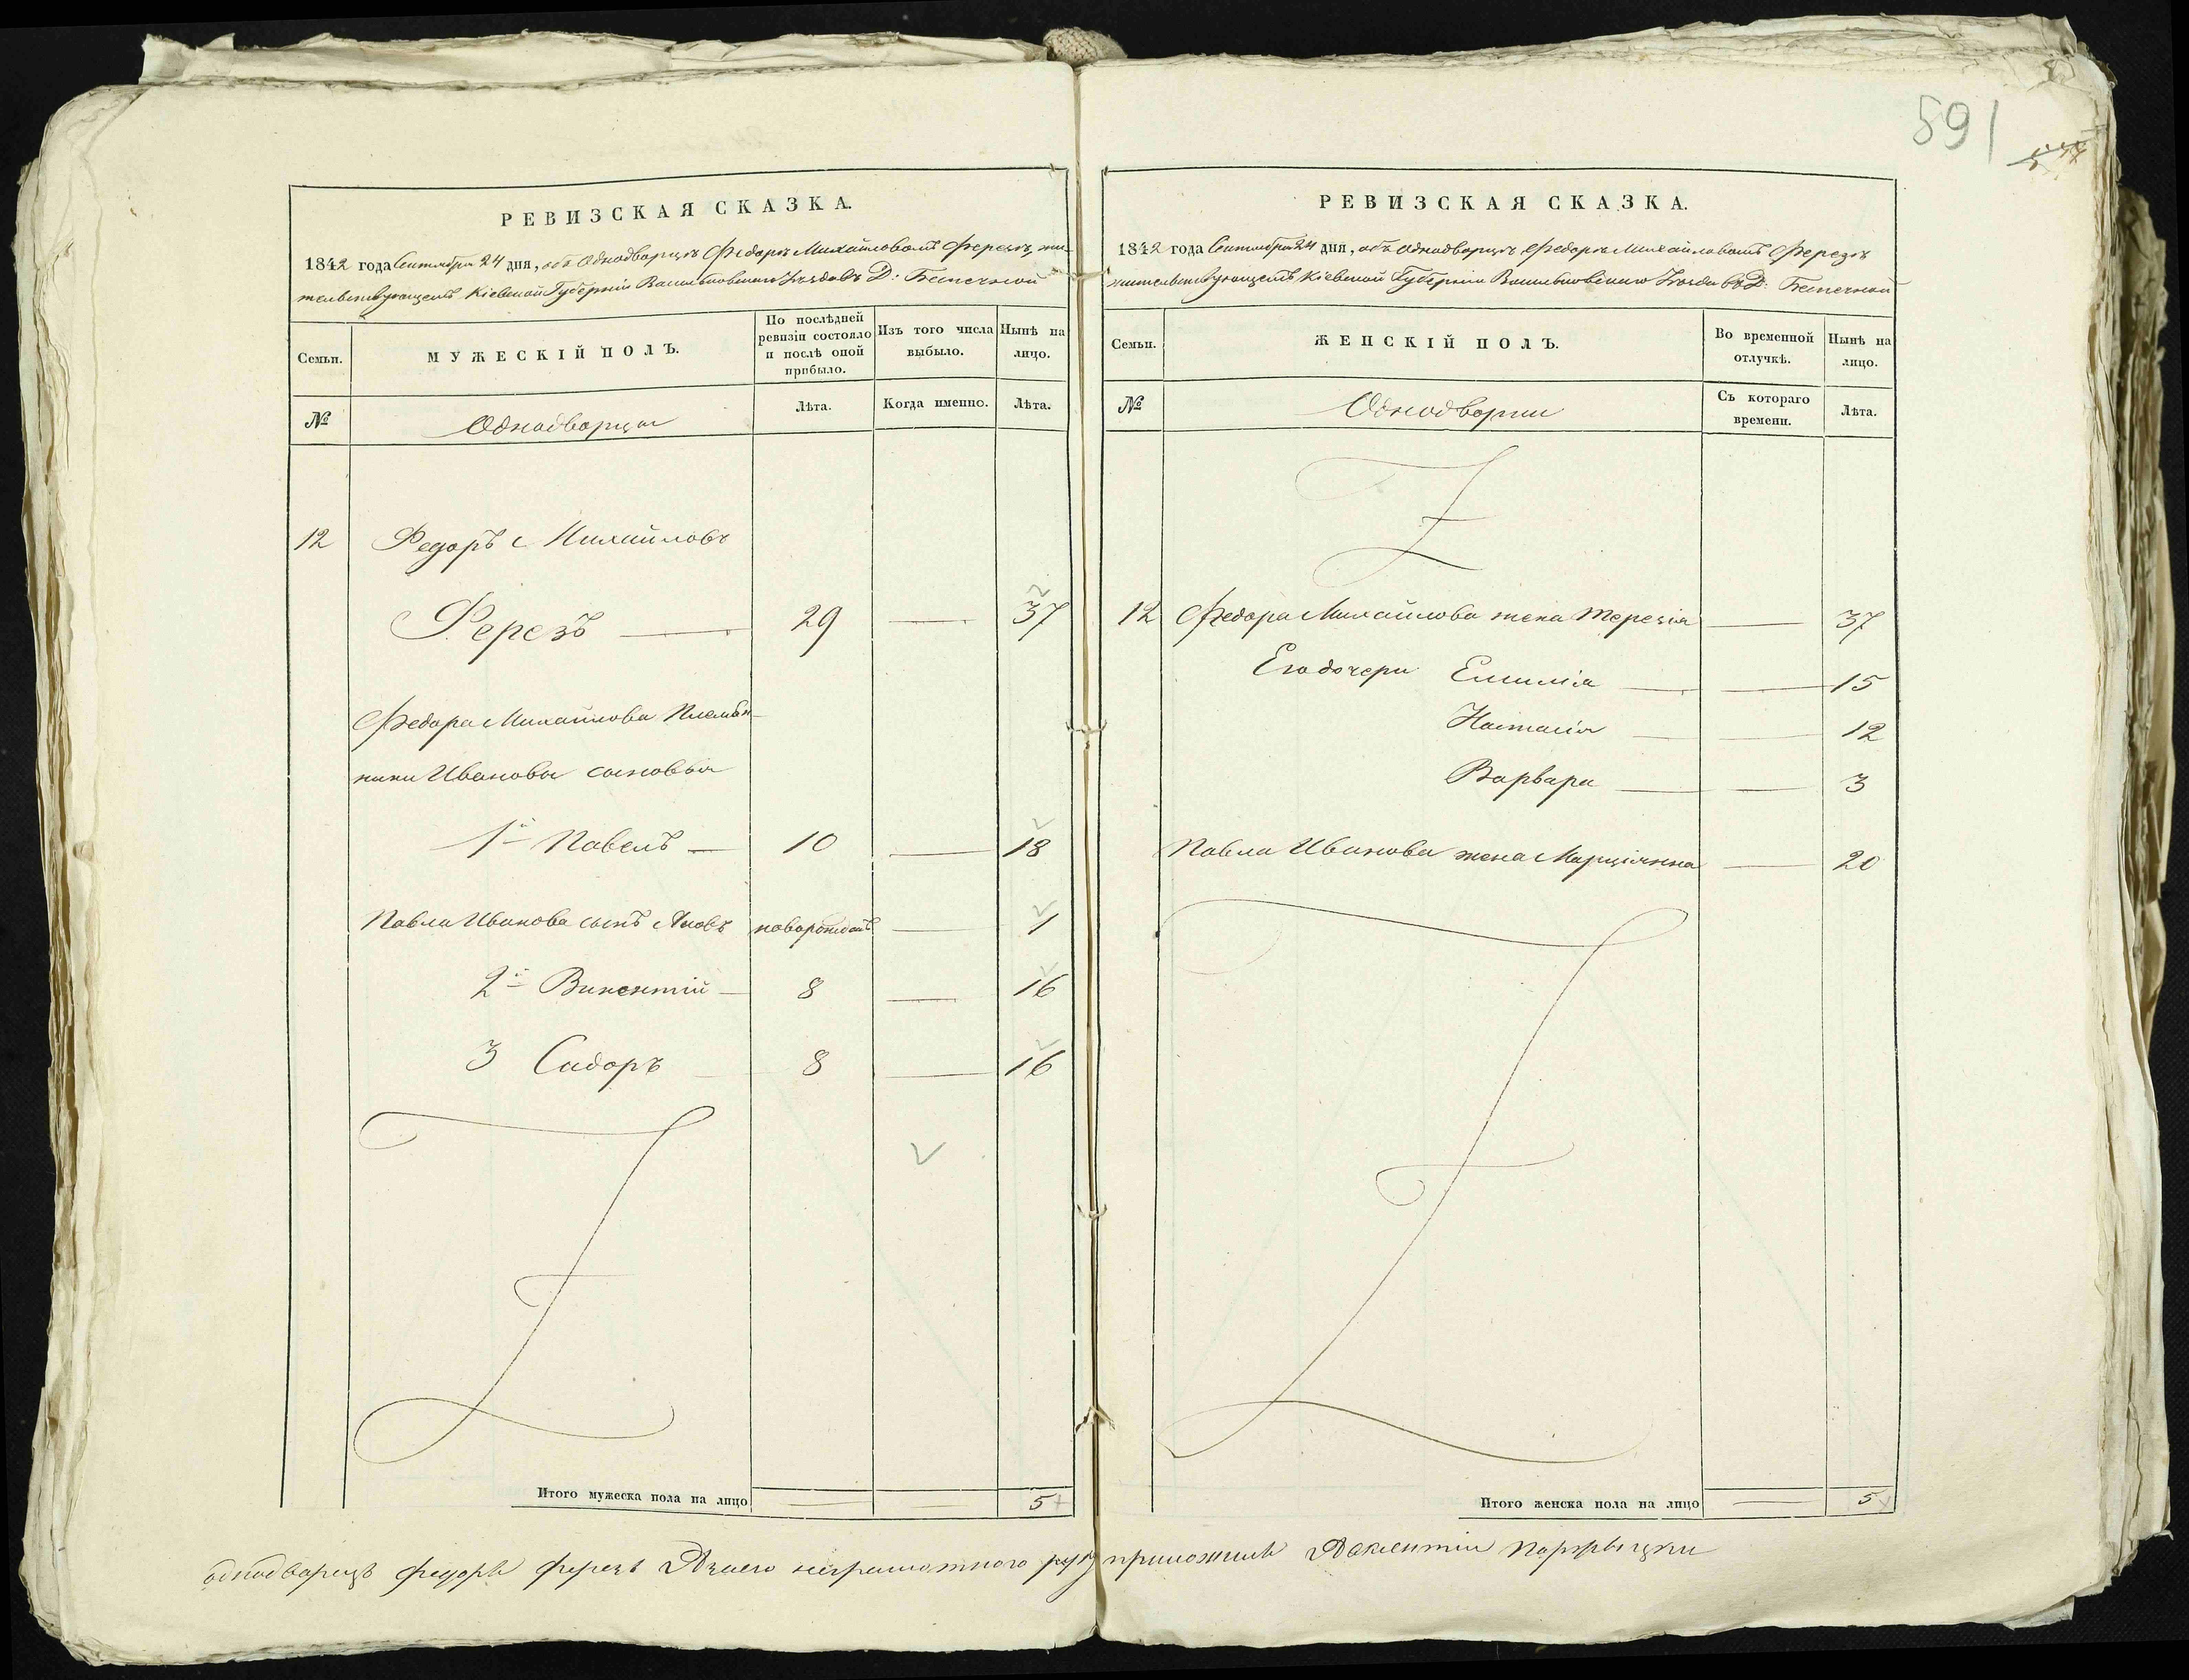 591
РЕВИЗСКАЯ СКАЗКА.
1842 года Сентября 24 дня, объ Однодворцѣ Федорѣ Михайловомъ Ферезѣ, жи-
тельствующемъ Кіевской Губерніи Васильковскаго Уѣзда въ Д: Безпечной
Семьи.
МУЖЕСКІЙ ПОЛЪ.
По послѣдней ревизіи состояло и послѣ оной прибыло.
Изъ того числа выбыло.
Нынѣ на лицо.
№
Однодворцы
Лѣта.
Когда именно.
Лѣта.
12 Федоръ Михайловъ
Ферезъ — 29 — 37
Федора Михайлова Племян-
ники Ивановы сыновья
1й Павелъ — 10 — 18
Павла Иванова сынъ Яковъ новорожденъ — 1
2й Викентій — 8 — 16
3 Сидоръ — 8 — 16
Итого мужеска пола на лицо 5
РЕВИЗСКАЯ СКАЗКА.
1842 года Сентября 24 дня, объ Однодворцѣ Федорѣ Михайловомъ Ферезѣ
жительствующемъ Кіевской Губерніи Васильковскаго Уѣзда въ Д: Безпечной
Семьи.
ЖЕНСКІЙ ПОЛЪ.
Во временной отлучкѣ.
Нынѣ на лицо.
№
Однодворки
Съ котораго времени.
Лѣта.
12 Федора Михайлова жена Терезія — 37
Его дочери Емилія — — 15
Настасія — — 12
Варвара — — 3
Павла Иванова жена Марціянна — 20
Итого женска пола на лицо 5
однодворецъ федоръ ферезъ Азаего неграмотного руку приложилъ